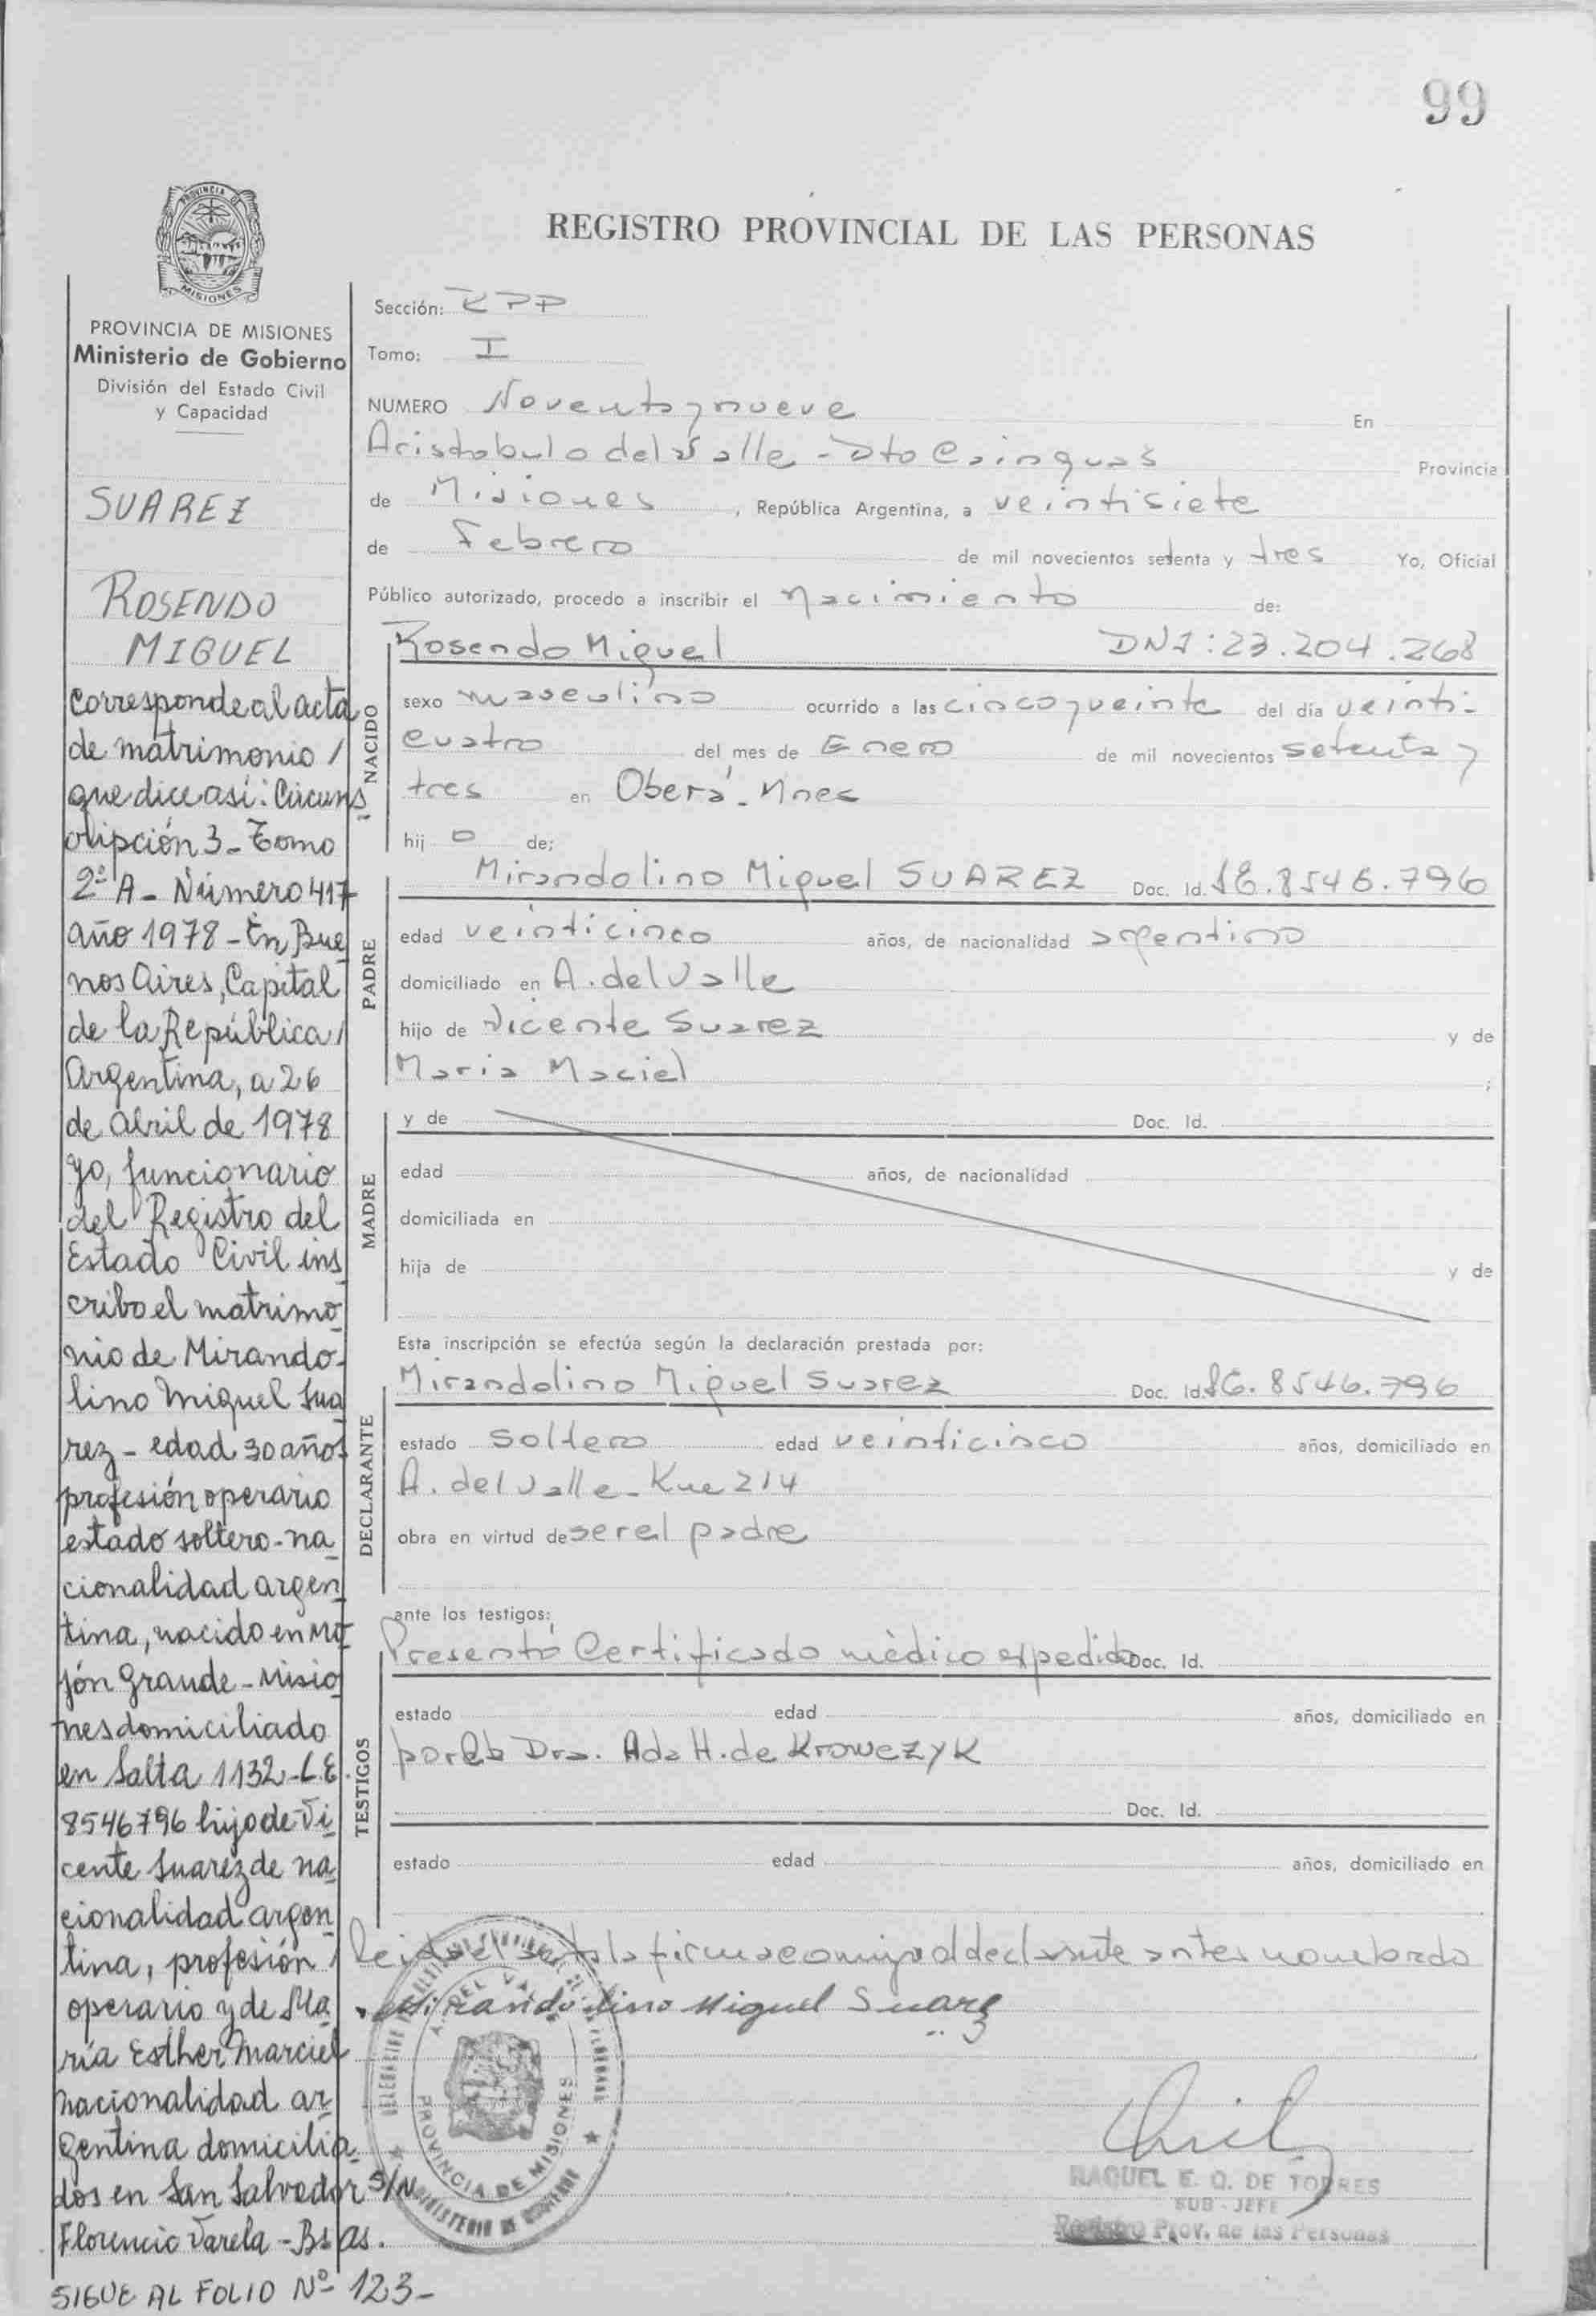 99
PROVINCIA DE
MISIONES
REGISTRO PROVINCIAL DE LAS PERSONAS
PROVINCIA DE MISIONES
Ministerio de Gobierno
División del Estado Civil
y Capacidad
SUAREZ
ROSENDO
MIGUEL
Corresponde al acta
de matrimonio /
que dice asi: Circuns
cripción 3 - Tomo
2º A - Número 417
año 1978 - En Bue
nos Aires, Capital
de la República /
Argentina, a 26
de abril de 1978
yo, funcionario
del Registro del
Estado Civil ins
cribo el matrimo
nio de Mirando-
lino Miguel Sua
rez - edad 30 años
profesión operario
estado soltero - na
cionalidad argen
tina, nacido en Mo
jón Grande - Misio
nes domiciliado
en Salta 1132 - L.E.
8546796 hijo de Vi
cente Suarez de na
cionalidad argen
tina, profesión /
operario y de Ma
ría Esther Marciel
nacionalidad ar
gentina domicilia
dos en San Salvador S/N
Florencio Varela - Bs As.
SIGUE AL FOLIO Nº 123-
Sección: RPP
Tomo: I
NUMERO Noventa y nueve En
Aristobulo del Valle - Dto Cainguas Provincia
de Misiones, República Argentina, a veintisiete
de Febrero de mil novecientos setenta y tres Yo, Oficial
Público autorizado, procedo a inscribir el nacimiento de:
NACIDO
Rosendo Miguel DNI: 23.204.268
sexo masculino ocurrido a las cinco y veinte del día veinti-
cuatro del mes de Enero de mil novecientos setenta y
tres en Oberá - Mnes
hij o de:
PADRE
Mirandolino Miguel SUAREZ Doc. Id. LE. 8546.796
edad veinticinco años, de nacionalidad argentino
domiciliado en A. del Valle
hijo de Vicente Suarez y de
Maria Maciel ;
MADRE
y de Doc. Id.
edad años, de nacionalidad
domiciliada en
hija de y de
Esta inscripción se efectúa según la declaración prestada por:
DECLARANTE
Mirandolino Miguel Suarez Doc. Id. LE. 8546.796
estado soltero edad veinticinco años, domiciliado en
A. del Valle - Km 214
obra en virtud de ser el padre
ante los testigos:
TESTIGOS
Presentó Certificado médico expedido Doc. Id.
estado edad años, domiciliado en
por la Dra. Ada H. de Krowczyk
Doc. Id.
estado edad años, domiciliado en
Leida el acta la firma conmigo el declarante antes nombrado
Mirandolino Miguel Suarez
A. DEL VALLE
PROVINCIA DE MISIONES
MINISTERIO DE GOBIERNO
RAQUEL E. Q. DE TORRES
SUB-JEFE
Registro Prov. de las Personas